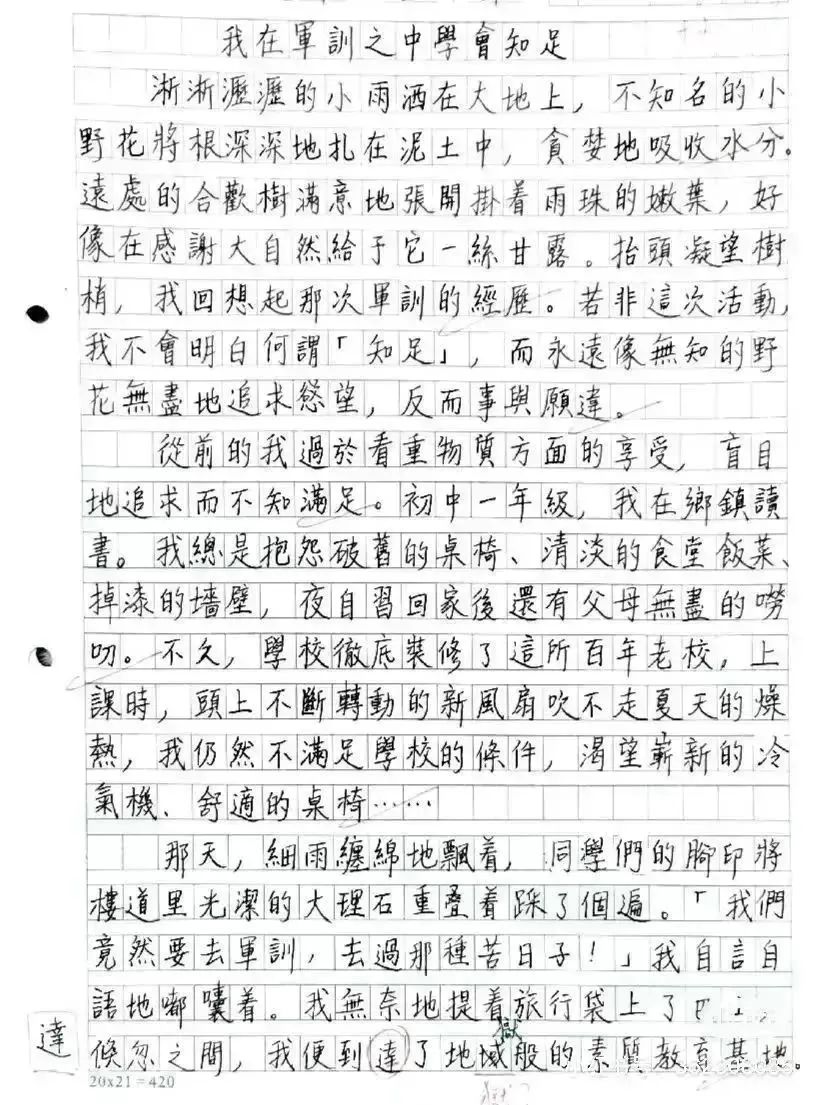 我在軍訓之中學會知足
淅淅瀝瀝的小雨洒在大地上，不知名的小
野花將根深深地扎在泥土中，貪婪地吸收水分。
遠處的合歡樹滿意地張開掛着雨珠的嫩葉，好
像在感謝大自然給于它一絲甘露。抬頭凝望樹
梢，我回想起那次軍訓的經歷。若非這次活動，
我不會明白何謂「知足」，而永遠像無知的野
花無盡地追求慾望，反而事與願違。
從前的我過於看重物質方面的享受，盲目
地追求而不知滿足。初中一年級，我在鄉鎮讀
書。我總是抱怨破舊的桌椅、清淡的食堂飯菜、
掉漆的墻壁，夜自習回家後還有父母無盡的嘮
叨。不久，學校徹底裝修了這所百年老校，上
課時，頭上不斷轉動的新風扇吹不走夏天的燥
熱，我仍然不滿足學校的條件，渴望嶄新的冷
氣機、舒適的桌椅……
那天，細雨纏綿地飄着，同學們的腳印將
樓道里光潔的大理石重疊着踩了個遍。「我們
竟然要去軍訓，去過那種苦日子！」我自言自
語地嘟囔着。我無奈地提着旅行袋上了巴士，
達
倏忽之間，我便到達了地域般的素質教育基地。
獄
20x21=420